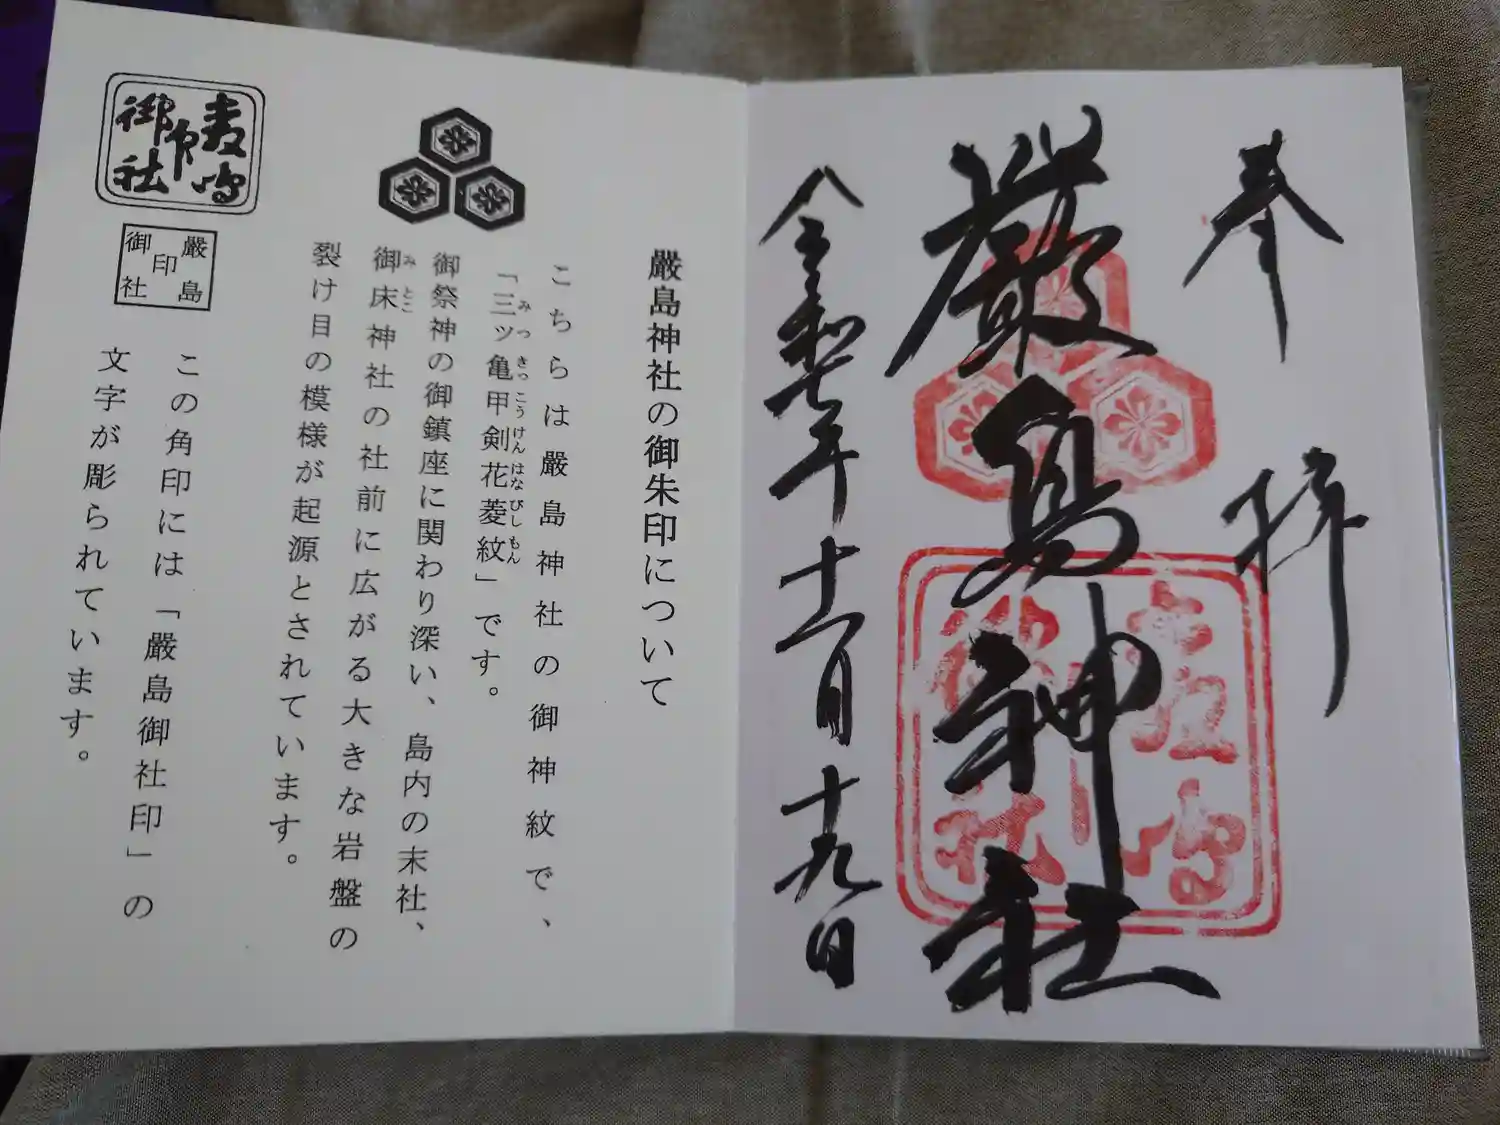 奉拝
厳島神社
令和七年十一月十九日
厳島神社の御朱印について
こちらは厳島神社の御神紋で、
「三ッ亀甲剣花菱紋」です。
みつきっこうけんはなびしもん
御祭神の御鎮座に関わり深い、島内の末社、
御床神社の社前に広がる大きな岩盤の
みとこ
裂け目の模様が起源とされています。
嚴島
印
御社
この角印には「嚴島御社印」の
文字が彫られています。